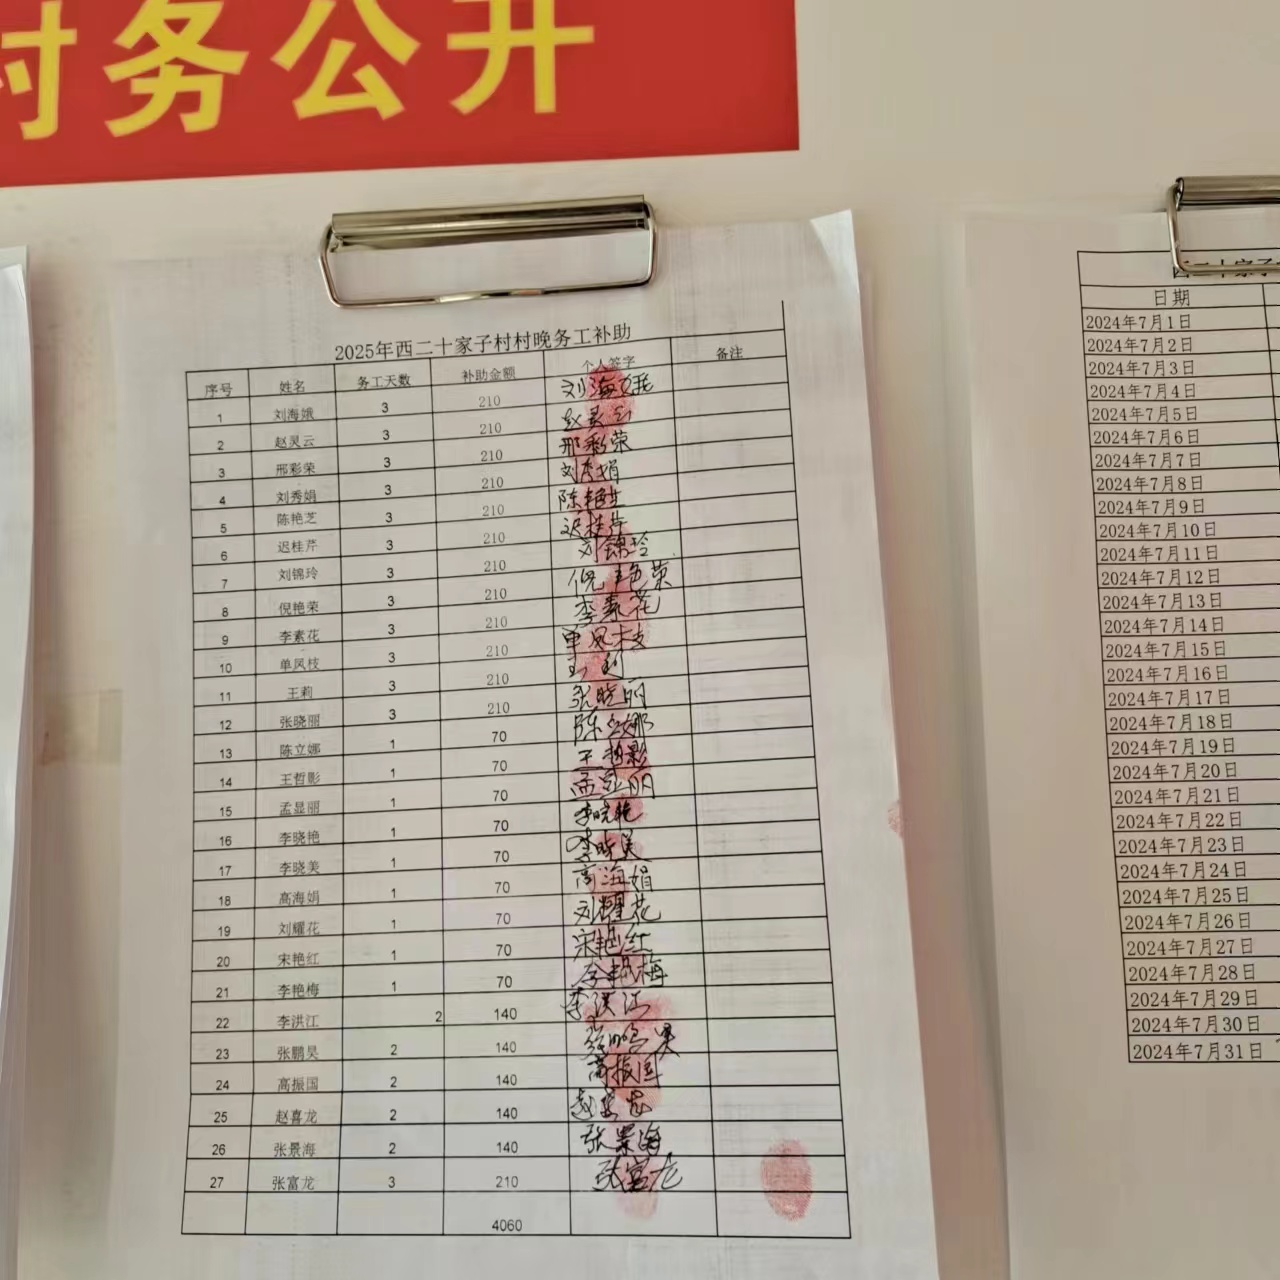 村务公开
2025年西二十家子村村晚务工补助
序号 姓名 务工天数 补助金额 个人签字 备注
1 刘海娥 3 210 刘海娥
2 赵灵云 3 210 赵灵云
3 邢彩荣 3 210 邢彩荣
4 刘秀娟 3 210 刘秀娟
5 陈艳芝 3 210 陈艳芝
6 迟桂芹 3 210 迟桂芹
7 刘锦玲 3 210 刘锦玲
8 倪艳荣 3 210 倪艳荣
9 李素花 3 210 李素花
10 单凤枝 3 210 单凤枝
11 王莉 3 210 王莉
12 张晓丽 3 210 张晓丽
13 陈立娜 1 70 陈立娜
14 王哲影 1 70 王哲影
15 孟显丽 1 70 孟显丽
16 李晓艳 1 70 李晓艳
17 李晓美 1 70 李晓美
18 高海娟 1 70 高海娟
19 刘耀花 1 70 刘耀花
20 宋艳红 1 70 宋艳红
21 李艳梅 1 70 李艳梅
22 李洪江 2 140 李洪江
23 张鹏昊 2 140 张鹏昊
24 高振国 2 140 高振国
25 赵喜龙 2 140 赵喜龙
26 张景海 2 140 张景海
27 张富龙 3 210 张富龙
4060
西二十家子
日期
2024年7月1日
2024年7月2日
2024年7月3日
2024年7月4日
2024年7月5日
2024年7月6日
2024年7月7日
2024年7月8日
2024年7月9日
2024年7月10日
2024年7月11日
2024年7月12日
2024年7月13日
2024年7月14日
2024年7月15日
2024年7月16日
2024年7月17日
2024年7月18日
2024年7月19日
2024年7月20日
2024年7月21日
2024年7月22日
2024年7月23日
2024年7月24日
2024年7月25日
2024年7月26日
2024年7月27日
2024年7月28日
2024年7月29日
2024年7月30日
2024年7月31日